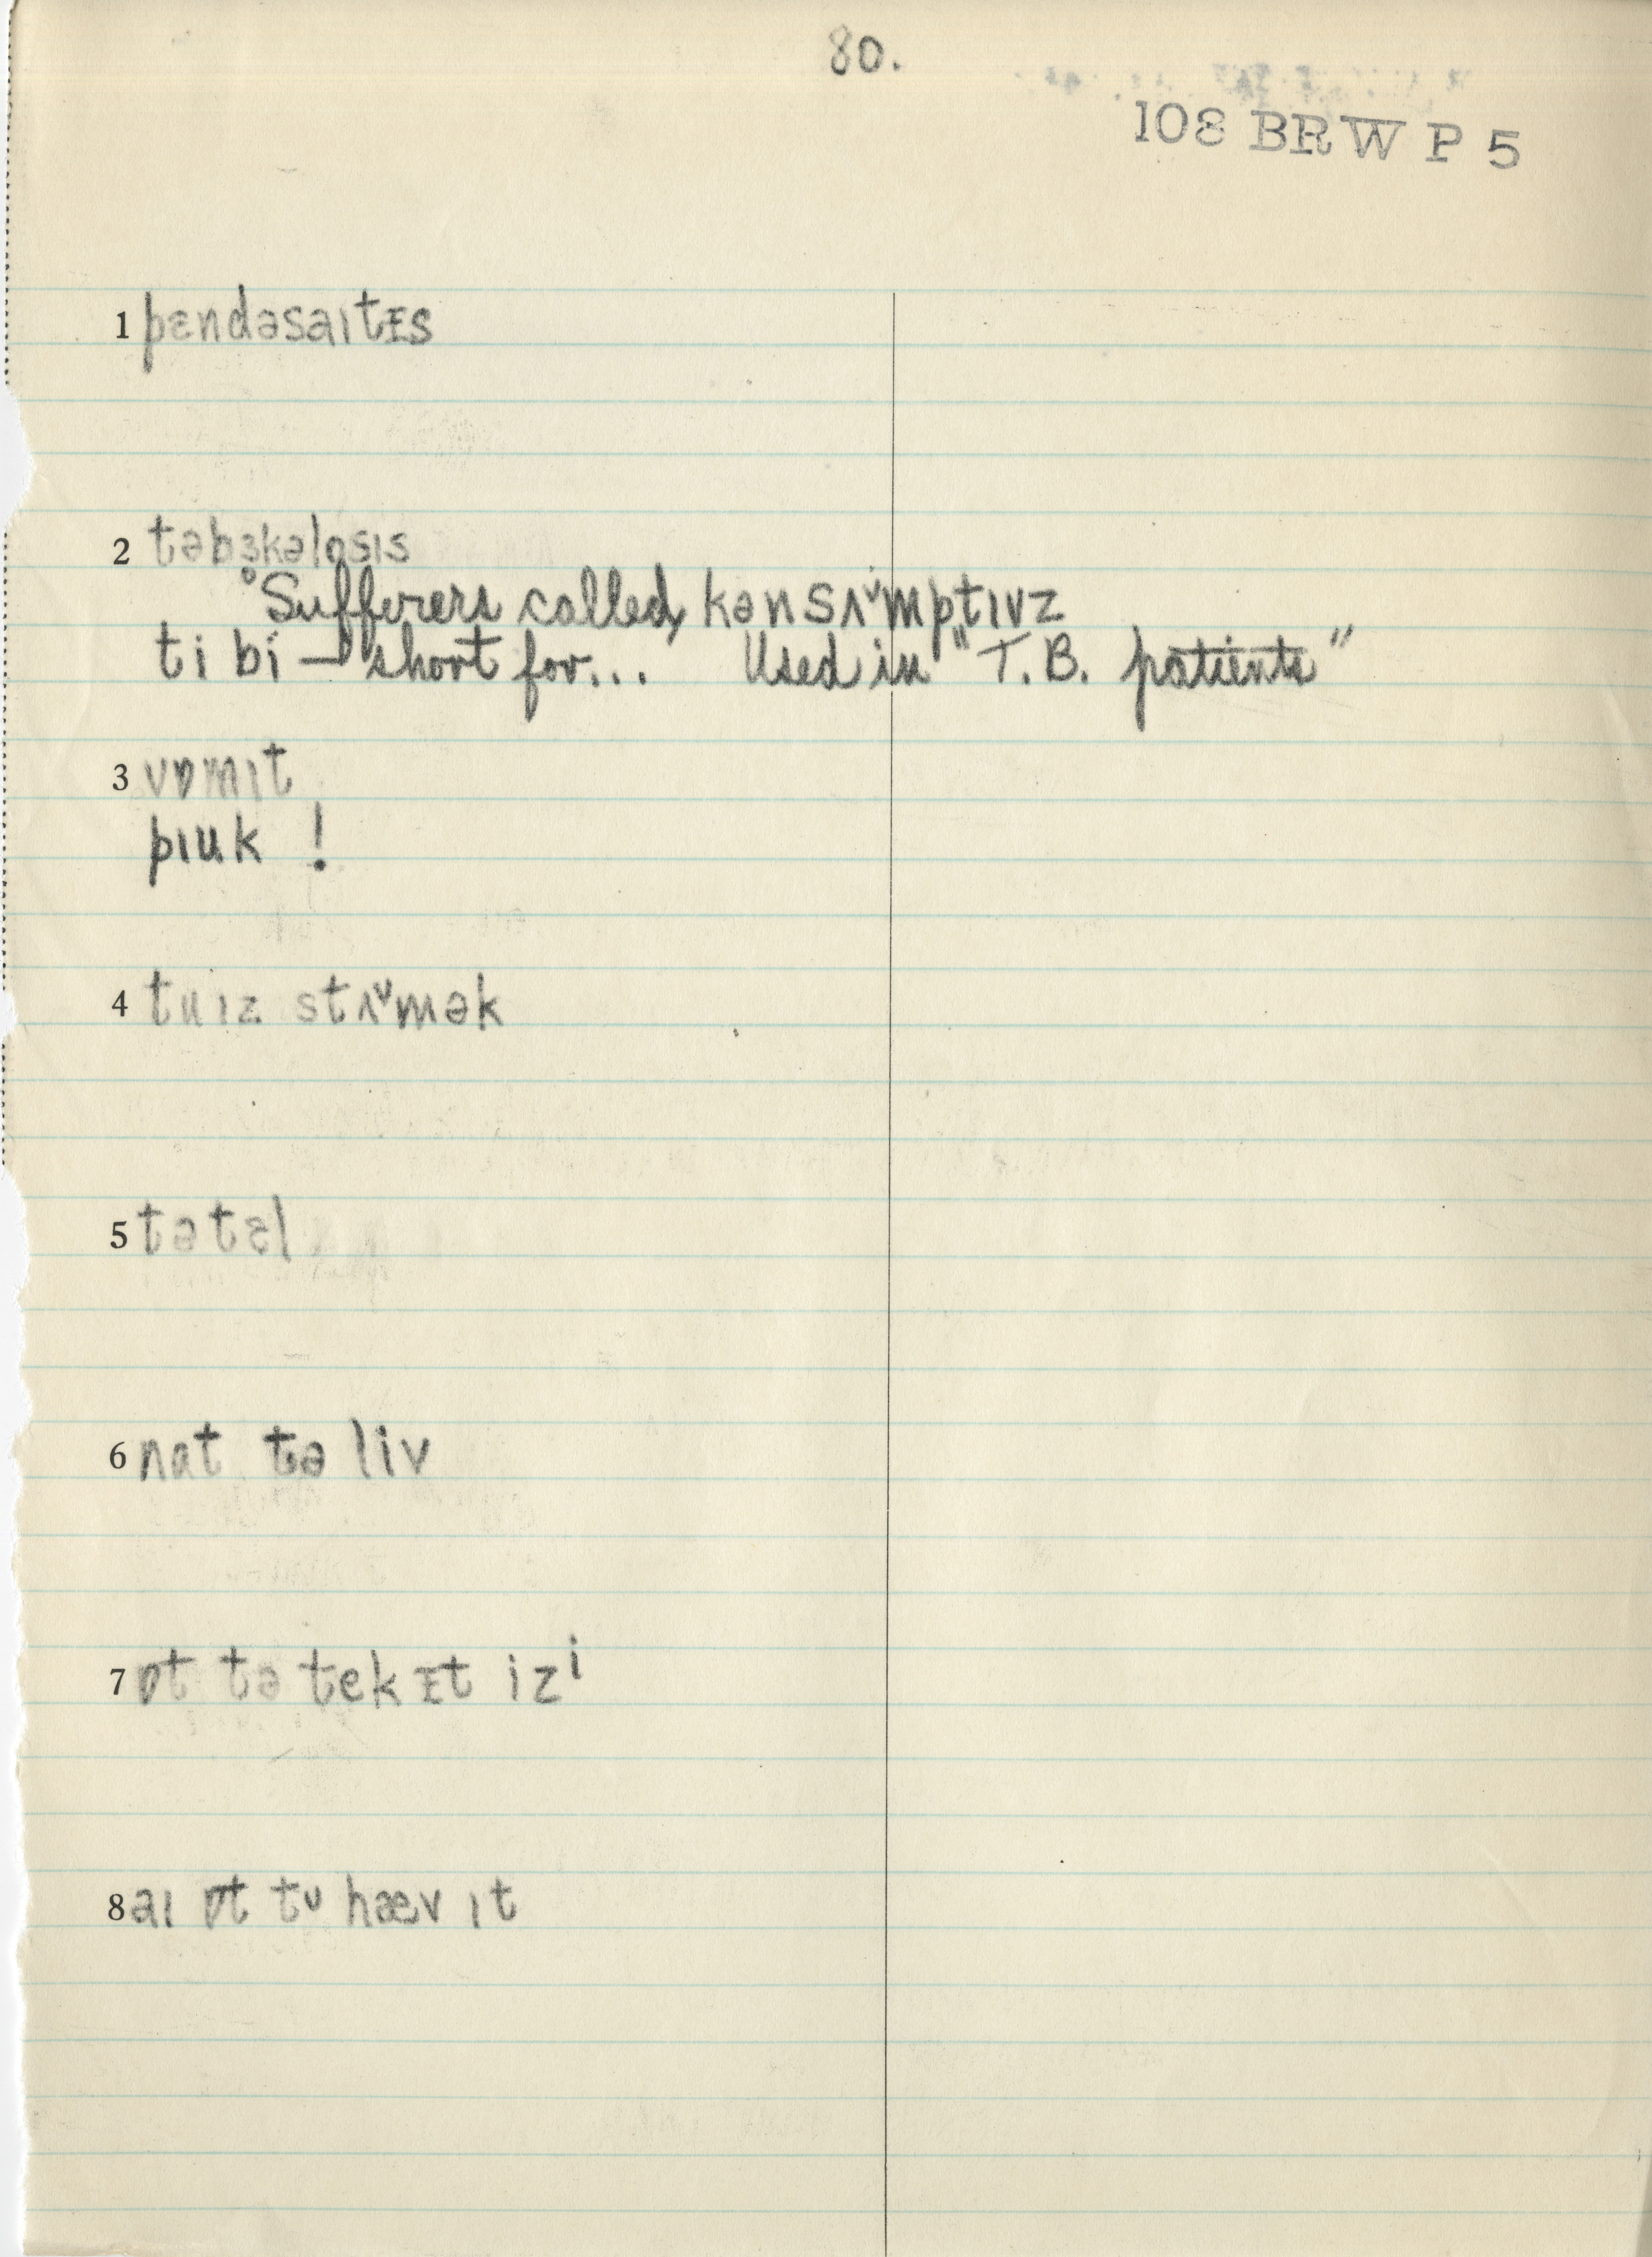 80.
108 BRW P 5
1 pɛndəsaɪtᵻs
2 təbɜkəlosɪs
°Sufferers called kənsʌ˅mptɪvz
ti bi — short for... Used in "T.B. patients"
3 vɒmɪt
pɪuk !
4 tu ɪz stʌ˅mək
5 tətɛl
6 nat tə liv
7 ɒt tə tek ᵻt izⁱ
8 aɪ ɒt tᵘ hæv ɪt